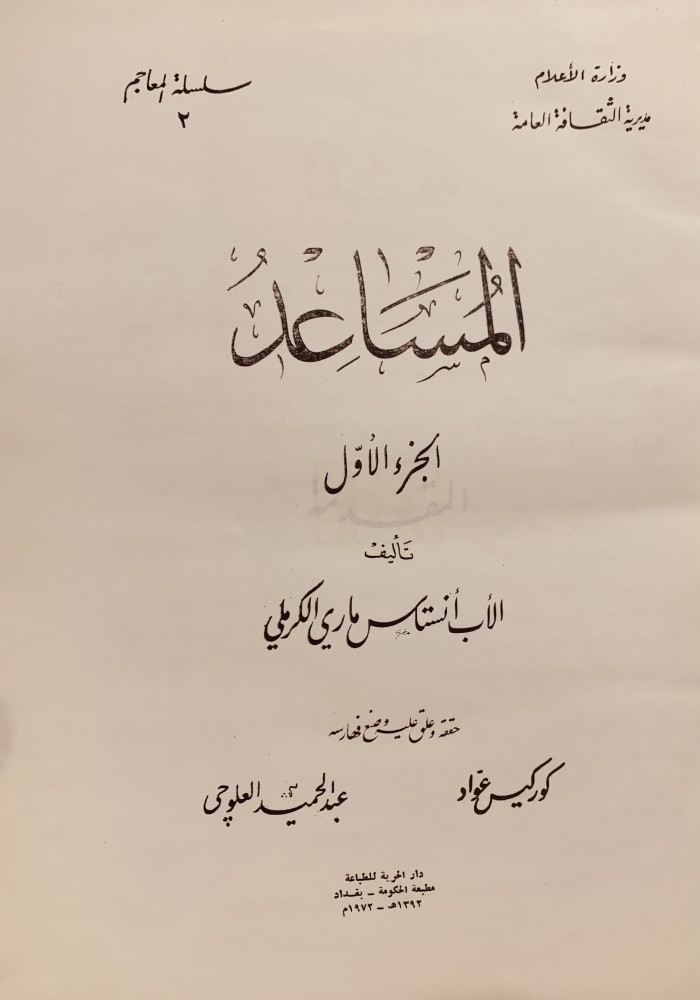 وزارة الأعلام
مديرية الثقافة العامة
سلسلة المعاجم
٢
المُسَاعِدُ
الجزء الأوّل
تأليف
الأب أنستاس ماري الكرملي
حققه وعلق عليه وضع فهارسه
كوركيس عوّاد
عبد الحميد العلوجي
دار الحرية للطباعة
مطبعة الحكومة ــ بغداد
١٣٩٢هـ ــ ١٩٧٢م